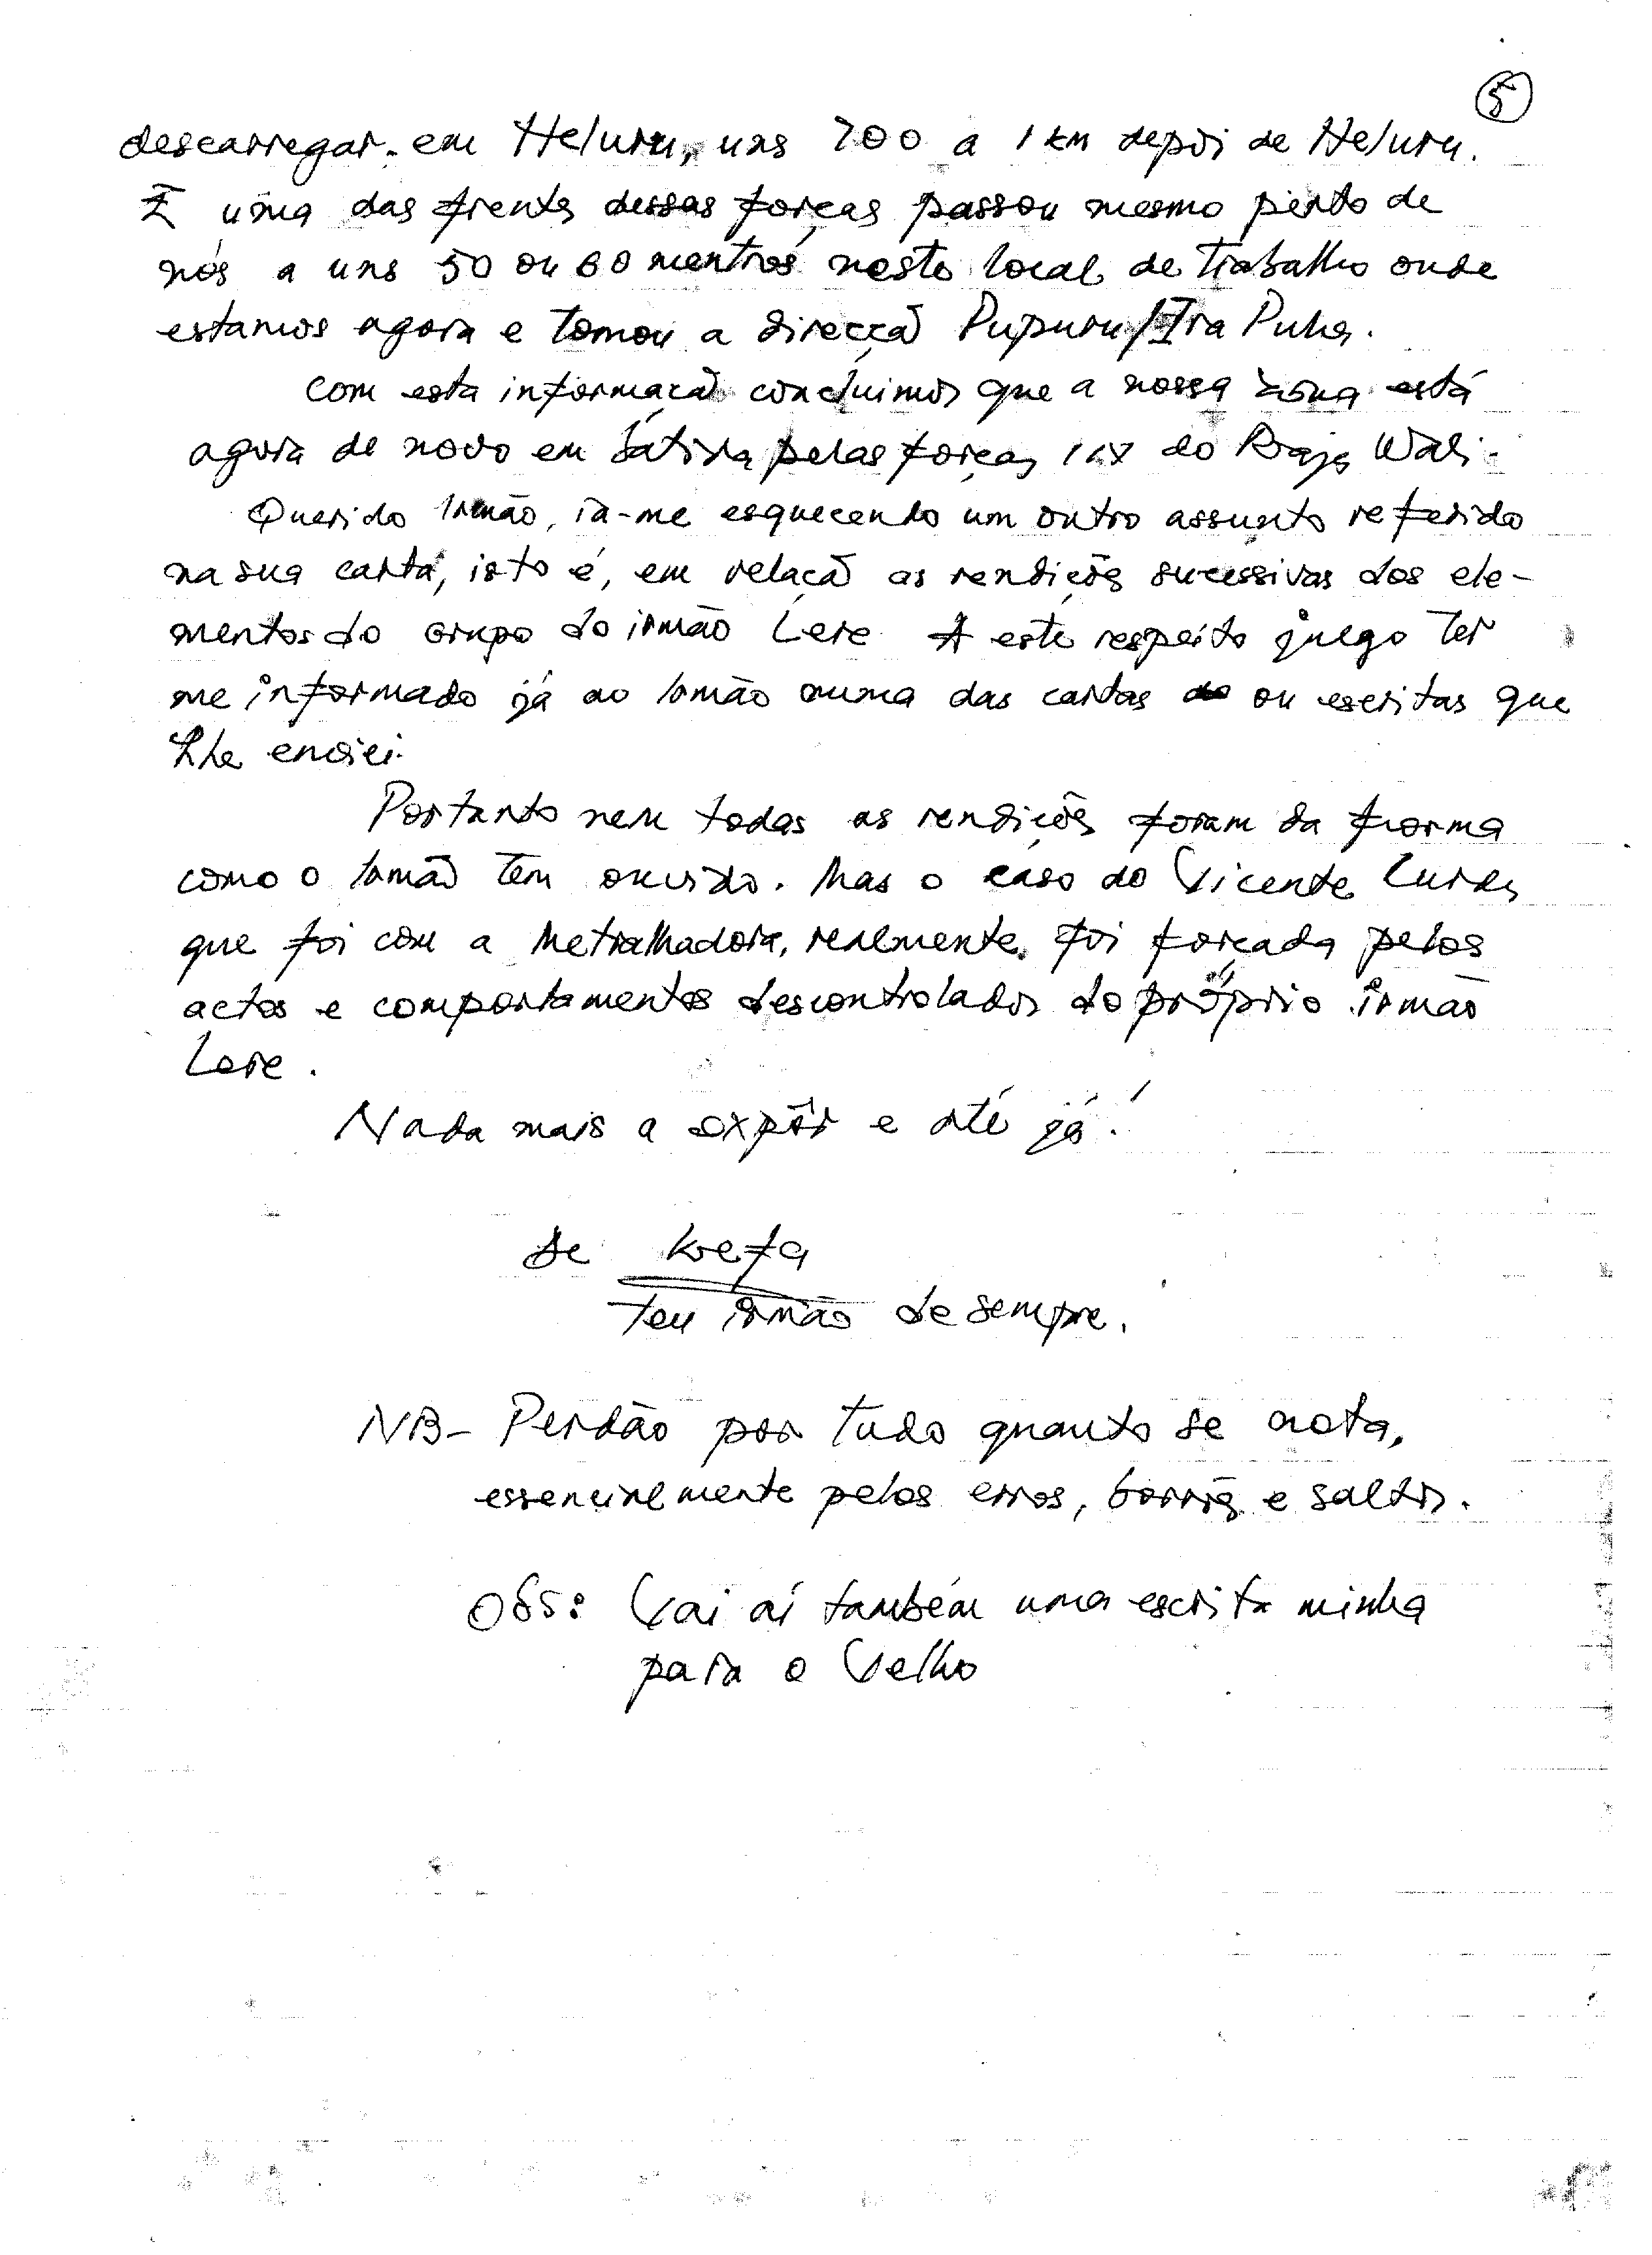 5
descarregar. em Heluru, uns 700 a 1 km depoi de Heluru.
E uma das frentes dessas forças passou mesmo perto de
nós a uns 50 ou 60 mentros neste local de trabalho onde
estamos agora e tomou a direcçã Pupuru/Ira Puha.
Com esta informaçã concluimos que a nossa zona está
agora de novo em batida pelas forças do Raja Wali.
Querido Irmão, ia-me esquecendo um outro assunto referido
na sua carta, isto é, em relaçã as rendiçõs sucessivas dos ele-
mentos do grupo do irmão Lere. A este respeito julgo ter
me informado já ao Irmão numa das cartas ou escritas que
lhe enviei.
Portanto nem todas as rendiçõs foram da forma
como o Irmã tem ouvido. Mas o caso do Vicente
que foi com a Metralhadora, realmente foi forçada pelos
actos e comportamentos descontrolados do próprio irmão
Lere.
Nada mais a expôr e até já!
de Kefa
teu irmão de sempre.
NB- Perdão por tudo quanto se nota,
essencialmente pelos erros, borrõs e saltos.
Obs: Vai aí também uma escrita minha
para o Velho